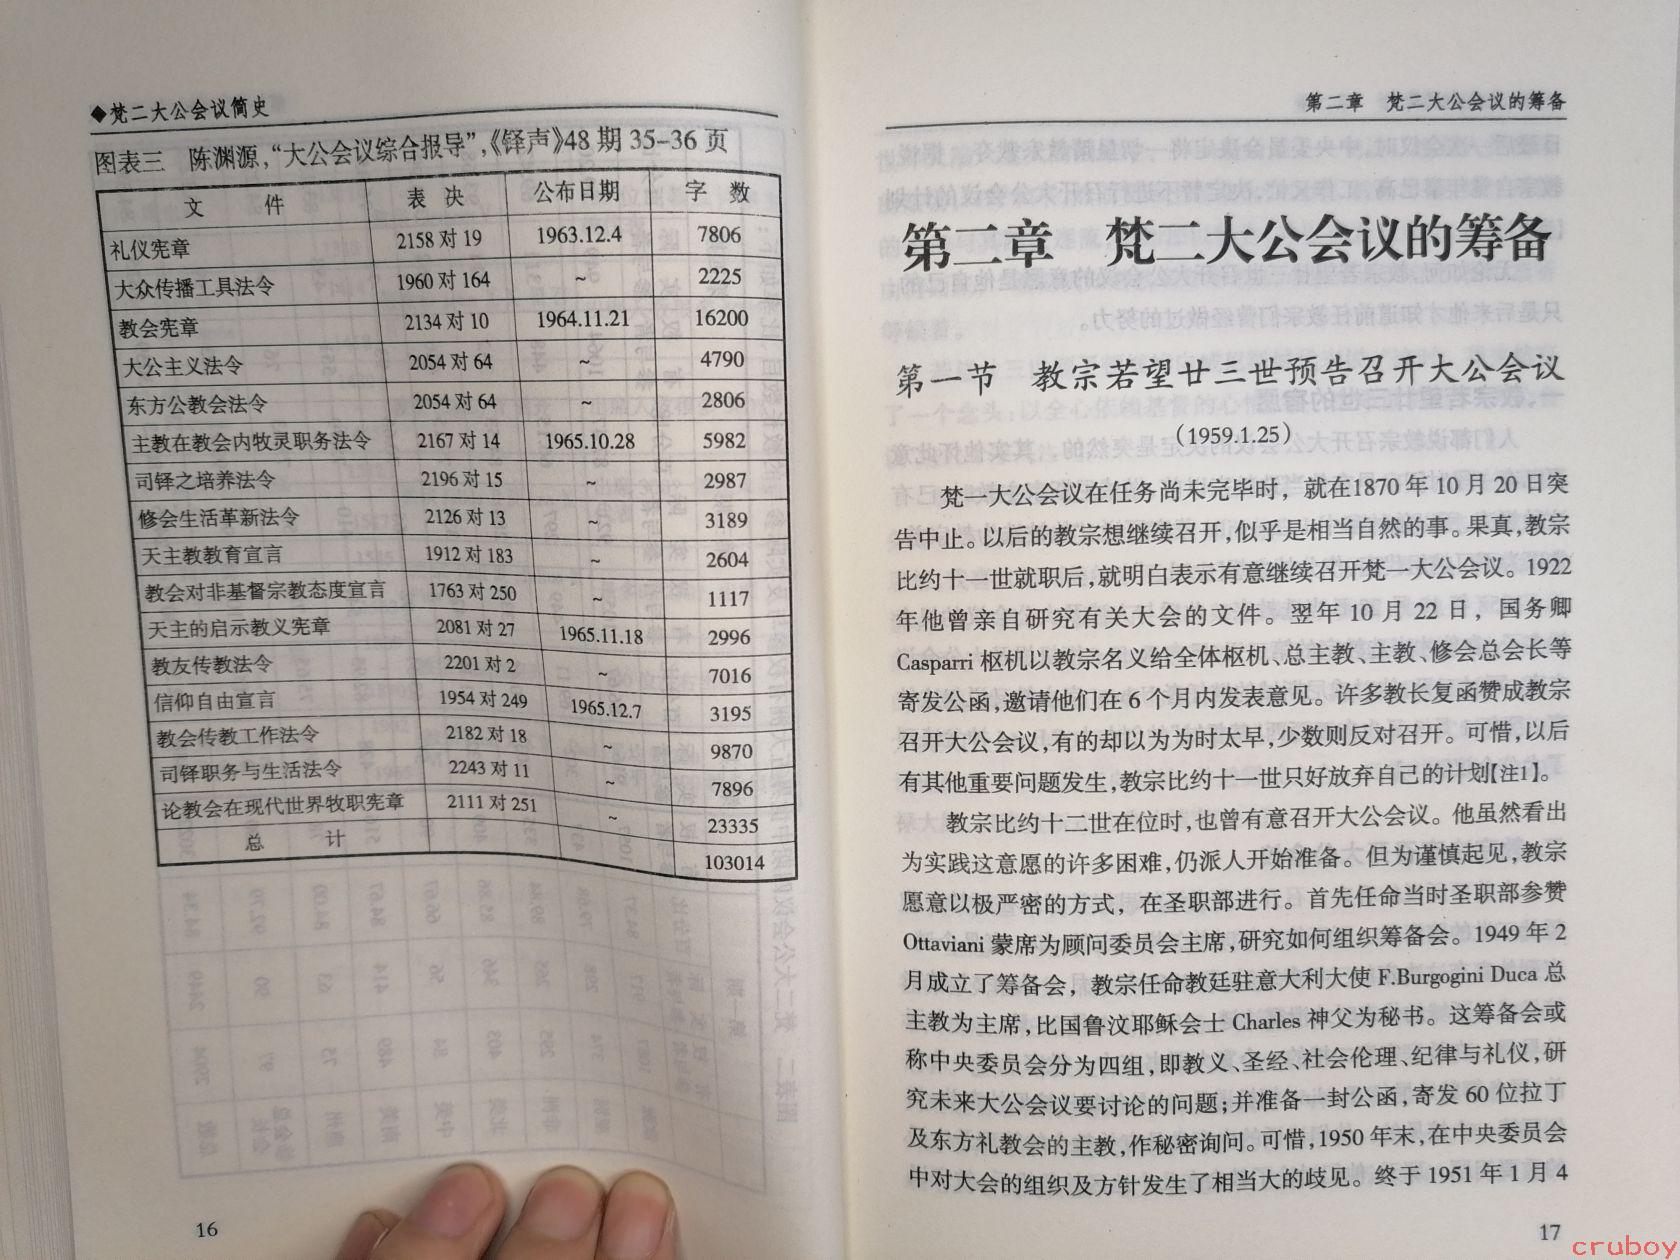 ◆梵二大公会议简史
图表三 陈渊源,“大公会议综合报导”,《铎声》48期35-36页
文 件 表 决 公布日期 字 数
礼仪宪章 2158对19 1963.12.4 7806
大众传播工具法令 1960对164 ~ 2225
教会宪章 2134对10 1964.11.21 16200
大公主义法令 2054对64 ~ 4790
东方公教会法令 2054对64 ~ 2806
主教在教会内牧灵职务法令 2167对14 1965.10.28 5982
司铎之培养法令 2196对15 ~ 2987
修会生活革新法令 2126对13 ~ 3189
天主教教育宣言 1912对183 ~ 2604
教会对非基督宗教态度宣言 1763对250 ~ 1117
天主的启示教义宪章 2081对27 1965.11.18 2996
教友传教法令 2201对2 ~ 7016
信仰自由宣言 1954对249 1965.12.7 3195
教会传教工作法令 2182对18 ~ 9870
司铎职务与生活法令 2243对11 ~ 7896
论教会在现代世界牧职宪章 2111对251 ~ 23335
总 计 103014
16
第二章 梵二大公会议的筹备
第二章 梵二大公会议的筹备
第一节 教宗若望廿三世预告召开大公会议
（1959.1.25）
梵一大公会议在任务尚未完毕时，就在1870年10月20日突
告中止。以后的教宗想继续召开,似乎是相当自然的事。果真,教宗
比约十一世就职后,就明白表示有意继续召开梵一大公会议。1922
年他曾亲自研究有关大会的文件。翌年10月22日，国务卿
Casparri枢机以教宗名义给全体枢机、总主教、主教、修会总会长等
寄发公函,邀请他们在6个月内发表意见。许多教长复函赞成教宗
召开大公会议,有的却以为为时太早,少数则反对召开。可惜,以后
有其他重要问题发生,教宗比约十一世只好放弃自己的计划【注1】。
教宗比约十二世在位时,也曾有意召开大公会议。他虽然看出
为实践这意愿的许多困难,仍派人开始准备。但为谨慎起见,教宗
愿意以极严密的方式，在圣职部进行。首先任命当时圣职部参赞
Ottaviani蒙席为顾问委员会主席,研究如何组织筹备会。1949年2
月成立了筹备会，教宗任命教廷驻意大利大使F.Burgogini Duca总
主教为主席,比国鲁汶耶稣会士Charles神父为秘书。这筹备会或
称中央委员会分为四组,即教义、圣经、社会伦理、纪律与礼仪,研
究未来大公会议要讨论的问题;并准备一封公函,寄发60位拉丁
及东方礼教会的主教,作秘密询问。可惜,1950年末,在中央委员会
中对大会的组织及方针发生了相当大的歧见。终于1951年1月4
17
cruboy